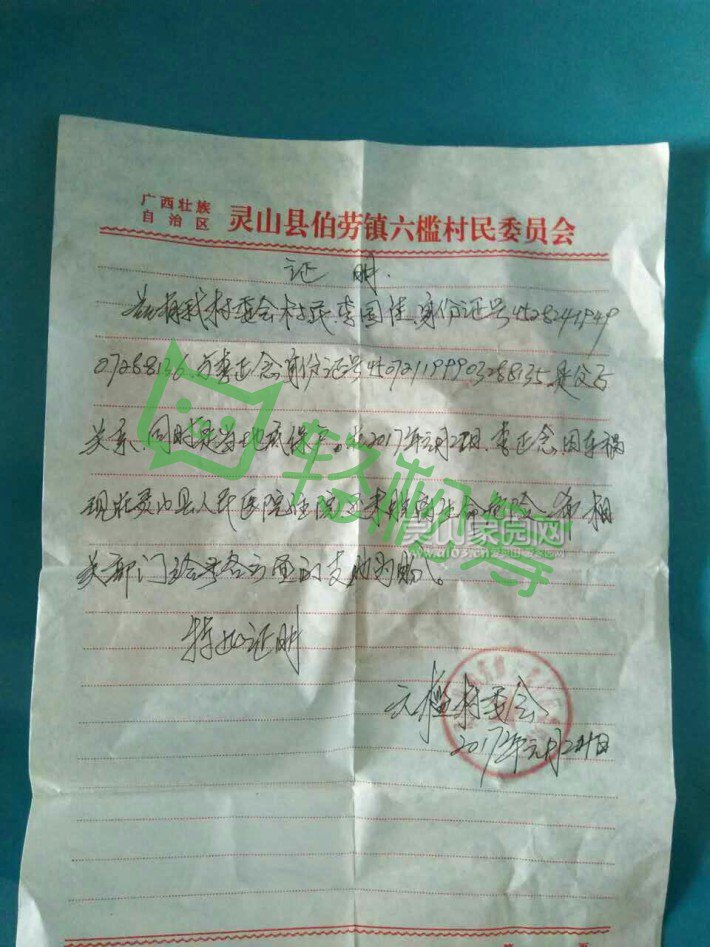 广西壮族
自治区 灵山县伯劳镇六槛村民委员会
证明.
兹有我村委会村民李国佳,身份证号4528241949
07288136.与李正念,身份证号450721199903288135.是父子
关系.同时是当地低保户。于2017年元月2日.李正念因车祸
现在灵山县人民医院住院还未脱离生命危险.希相
关部门给予各方面的支助为盼。
特此证明
六槛村委会
2017年元月2日
轻松筹
灵山家园网